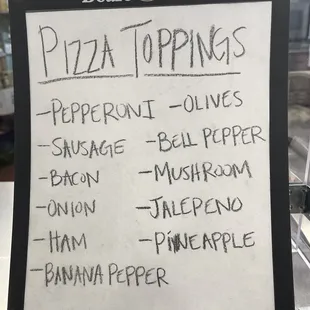 PIZZA TOPPINGS
-PEPPERONI -OLIVES
-SAUSAGE -BELL PEPPER
-BACON -MUSHROOM
-ONION -JALEPENO
-HAM -PINEAPPLE
-BANANA PEPPER